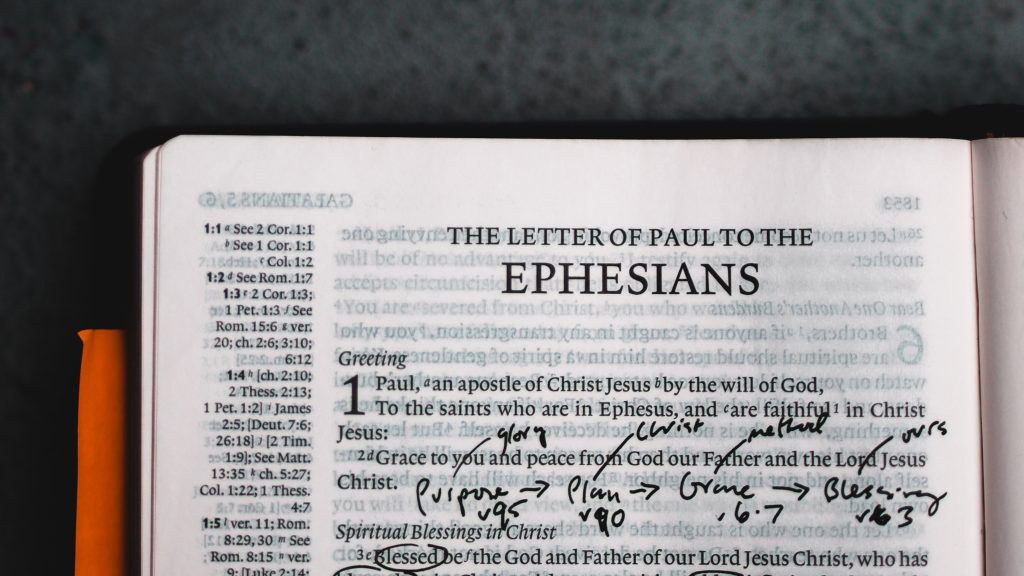 THE LETTER OF PAUL TO THE
EPHESIANS
1:1 a See 2 Cor. 1:1
b See 1 Cor. 1:1
c Col. 1:2
1:2 d See Rom. 1:7
1:3 e 2 Cor. 1:3;
1 Pet. 1:3 f See
Rom. 15:6 g ver.
20; ch. 2:6; 3:10;
6:12
1:4 h [ch. 2:10;
2 Thess. 2:13;
1 Pet. 1:2] i James
2:5; [Deut. 7:6;
26:18] j [2 Tim.
1:9]; See Matt.
13:35 k ch. 5:27;
Col. 1:22; 1 Thess.
4:7
1:5 l ver. 11; Rom.
8:29, 30 m See
Rom. 8:15 n ver.
9; [Luke 2:14;
Greeting
1 Paul, a an apostle of Christ Jesus b by the will of God,
To the saints who are in Ephesus, and c are faithful 1 in Christ
Jesus:
glory Christ method ours
2 d Grace to you and peace from God our Father and the Lord Jesus
Christ.
Purpose → Plan → Grace → Blessing
v6-7
Spiritual Blessings in Christ
3 e Blessed be f the God and Father of our Lord Jesus Christ, who has